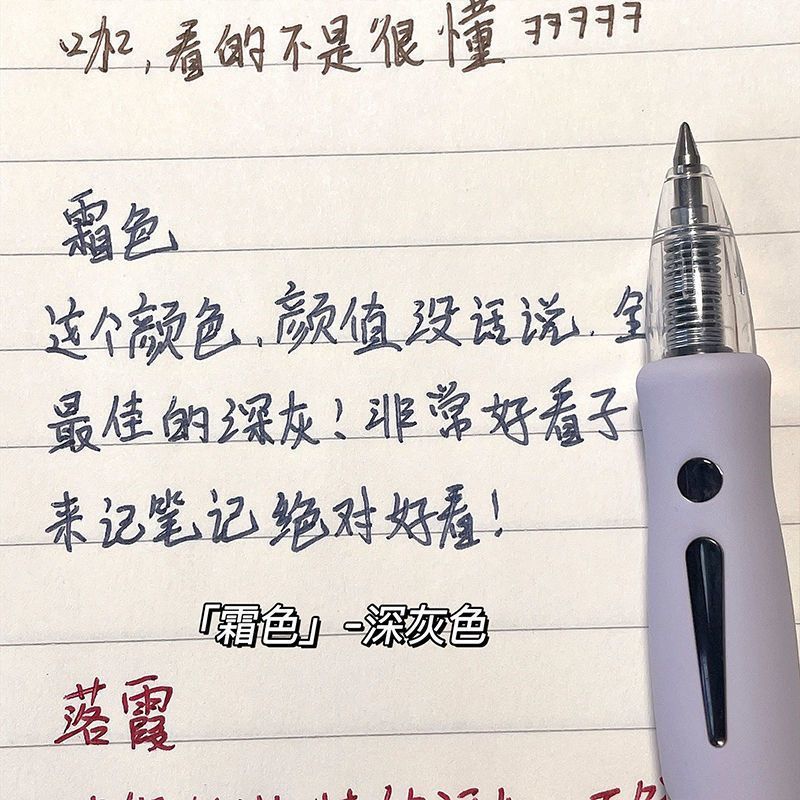 咖,看的不是很懂ママママママ
霜色
这个颜色,颜值没话说.全
最佳的深灰!非常好看子
来记笔记绝对好看!
「霜色」-深灰色
落霞